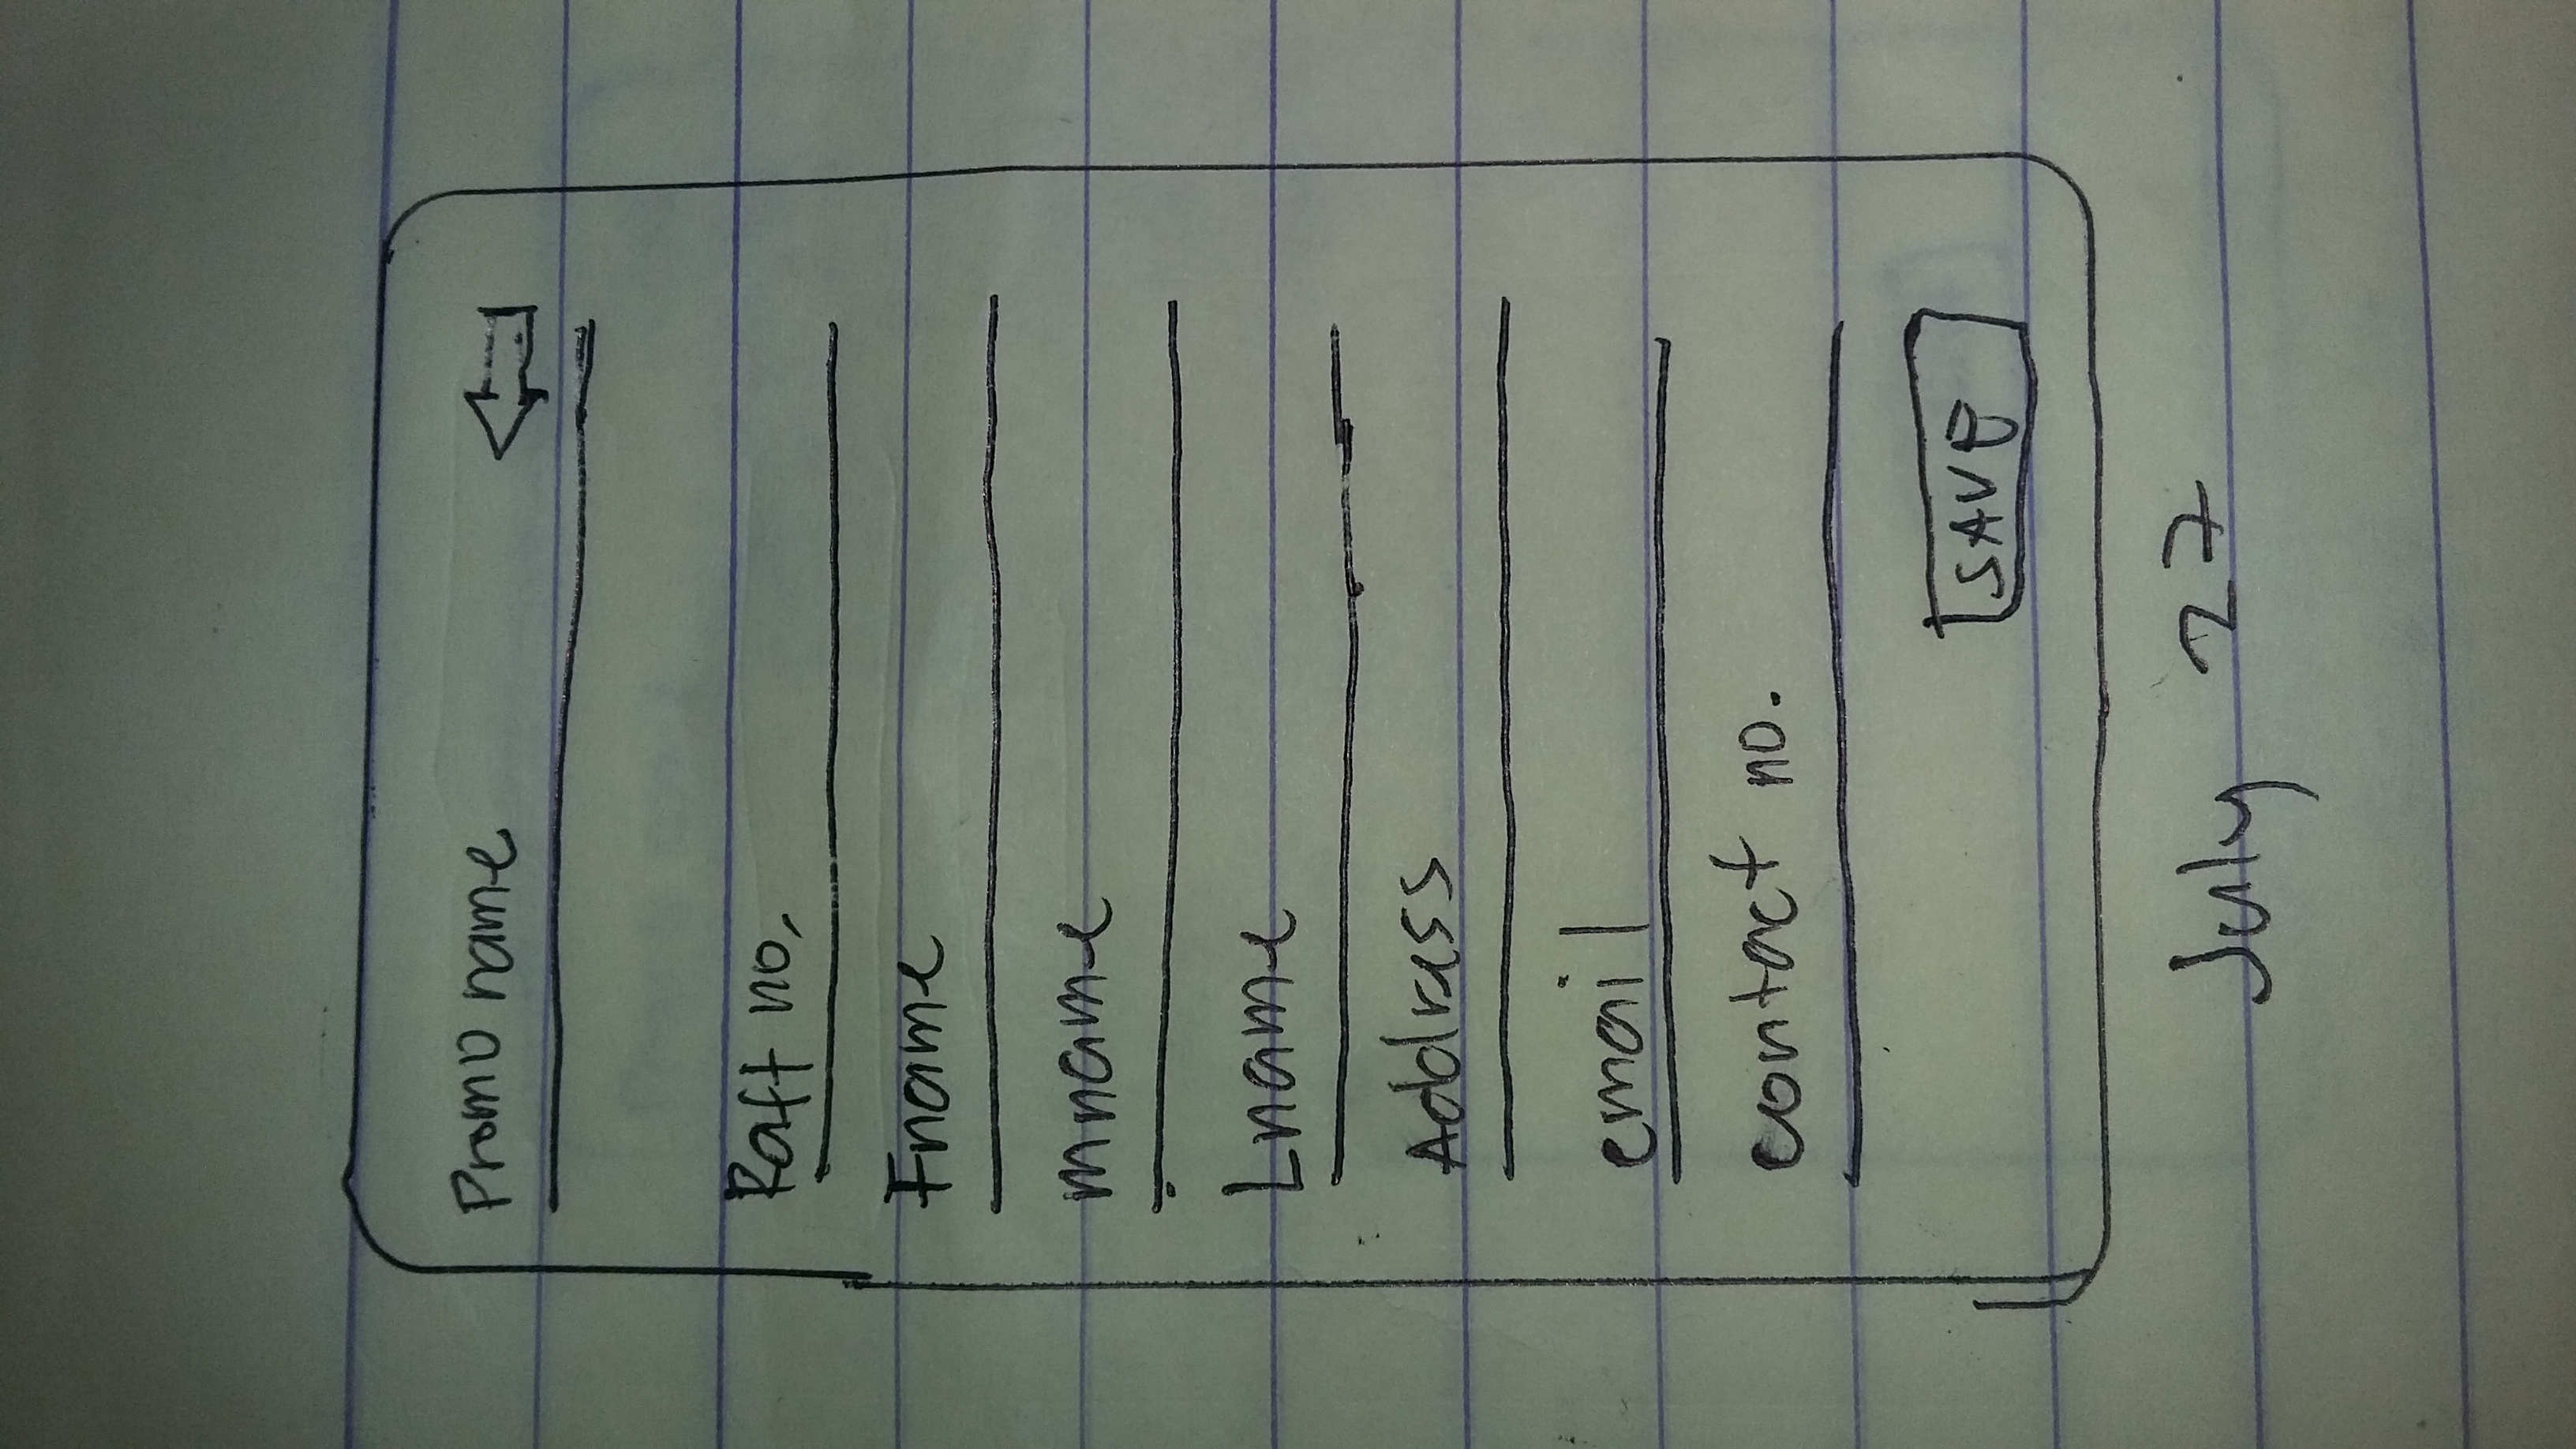 Promo name
Raff no.
Fname
mname
Lname
Address
email
contact no.
SAVE
July 27